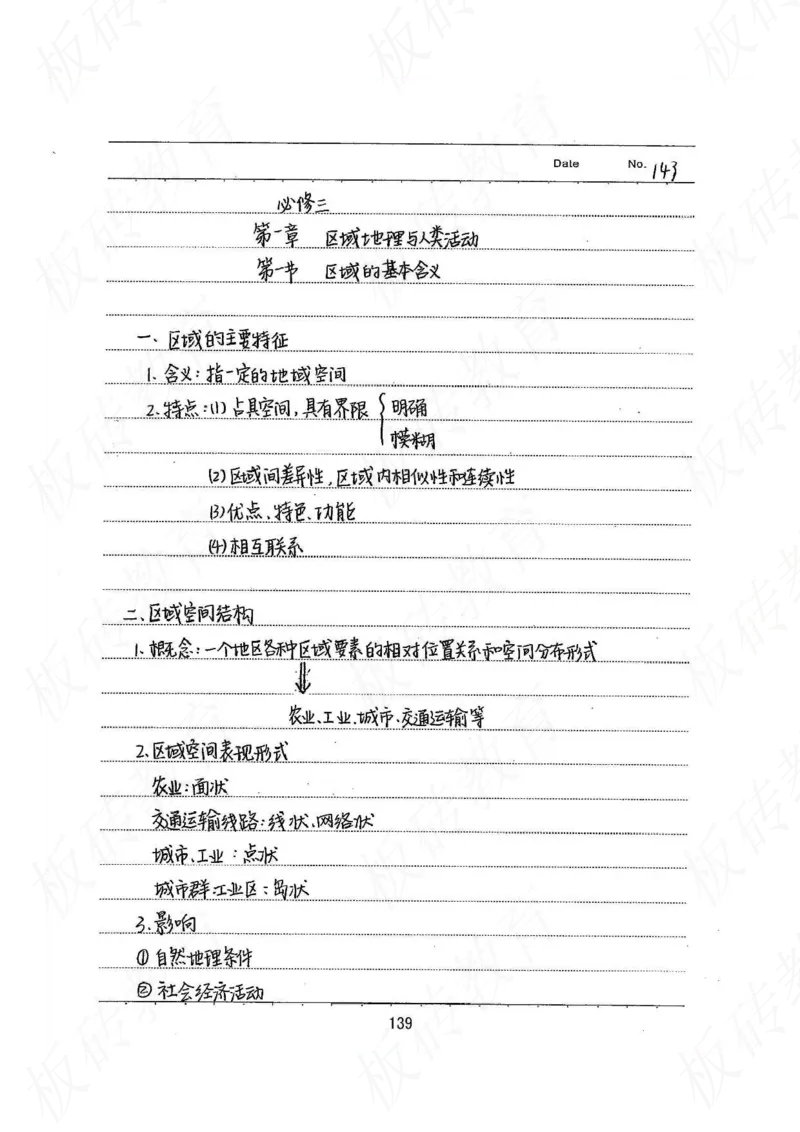 Date No. 143
必修三
第一章 区域地理与人类活动
第一节 区域的基本含义
一、区域的主要特征
1. 含义：指一定的地域空间
2. 特点：(1) 占具空间，具有界限 { 明确
模糊
(2) 区域间差异性，区域内相似性和连续性
(3) 优点、特色、功能
(4) 相互联系
二、区域空间结构
1. 概念：一个地区各种区域要素的相对位置关系和空间分布形式
⇓
农业、工业、城市、交通运输等
2. 区域空间表现形式
农业：面状
交通运输线路：线状、网络状
城市、工业：点状
城市群.工业区：岛状
3. 影响
① 自然地理条件
② 社会经济活动
139
板砖教育